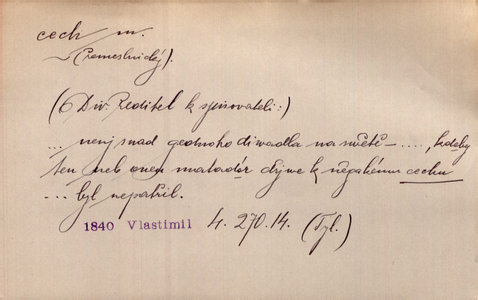 cech m.
(řemeslnický).
(Div. Ředitel k spisovateli:)
... nenj snad gednoho diwadla na swětě – ...., kdeby
ten neb onen matadór dřjwe k něgakému cechu
... byl nepatřil.
1840 Vlastimil 4. 270.14. (Tyl.)